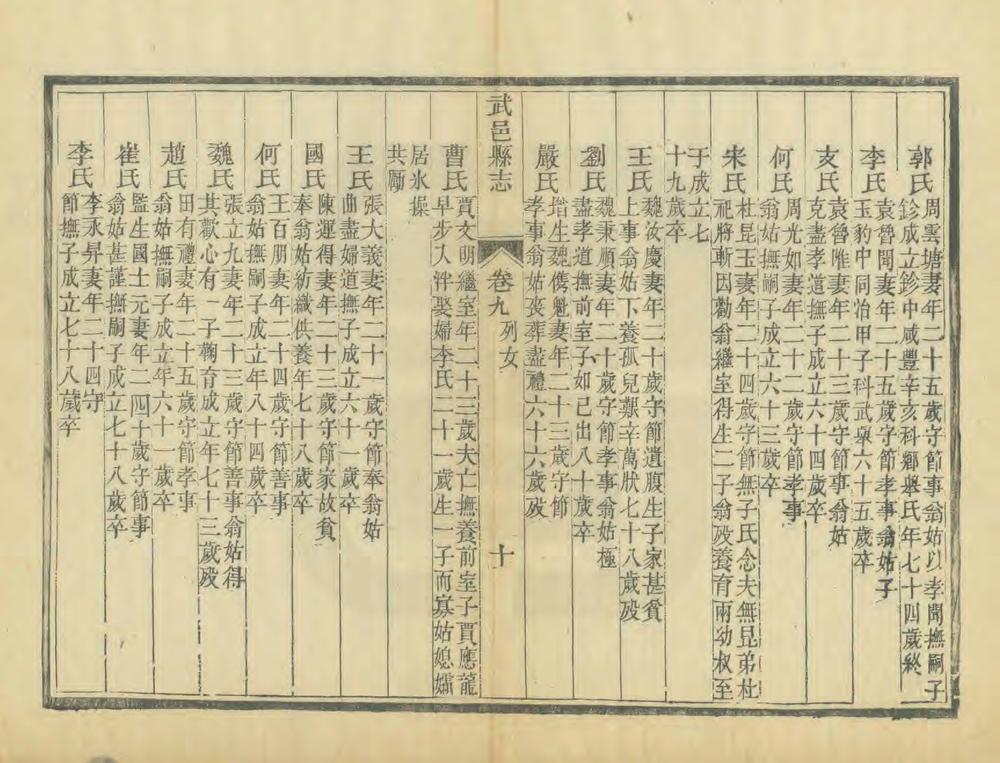 郭氏
周雲塘妻年二十五歲守節事翁姑以孝聞撫嗣子
鉁成立鉁中咸豐辛亥科鄉舉氏年七十四歲終
李氏
袁魯聞妻年二十五歲守節孝事翁姑子
玉豹中同治甲子科武舉六十五歲卒
支氏
袁魯唯妻年二十三歲守節事翁姑
克盡孝道撫子成立六十四歲卒
何氏
周光如妻年二十二歲守節孝事
翁姑撫嗣子成立六十三歲卒
朱氏
杜昆玉妻年二十四歲守節無子氏念夫無昆弟杜
祀將斬因勸翁繼室得生二子翁歿養育兩幼叔至
于成立七
十九歲卒
王氏
魏汝慶妻年二十歲守節遺腹生子家甚貧
上事翁姑下養孤兒艱辛萬狀七十八歲歿
劉氏
魏秉順妻年二十歲守節孝事翁姑極
盡孝道撫前室子如己出八十歲卒
嚴氏
增生魏儁魁妻年二十三歲守節
孝事翁姑喪葬盡禮六十六歲歿
武邑縣志
卷九 列女
十
曹氏
賈文明繼室年二十三歲夫亡撫養前室子賈應龍
早步入泮娶婦李氏二十一歲生一子而寡姑媳孀
居氷操
共勵
王氏
張大義妻年二十一歲守節奉翁姑
曲盡婦道撫子成立六十一歲卒
國氏
陳運得妻年二十三歲守節家故貧
奉翁姑紡織供養年七十八歲卒
何氏
王百朋妻年二十四歲守節善事
翁姑撫嗣子成立年八十四歲卒
魏氏
張立九妻年二十三歲守節善事翁姑得
其歡心有一子鞠育成立年七十三歲歿
趙氏
田有禮妻年二十五歲守節孝事
翁姑撫嗣子成立年六十一歲卒
崔氏
監生國士元妻年二四十歲守節事
翁姑甚謹撫嗣子成立七十八歲卒
李氏
李永昇妻年二十四守
節撫子成立七十八歲卒